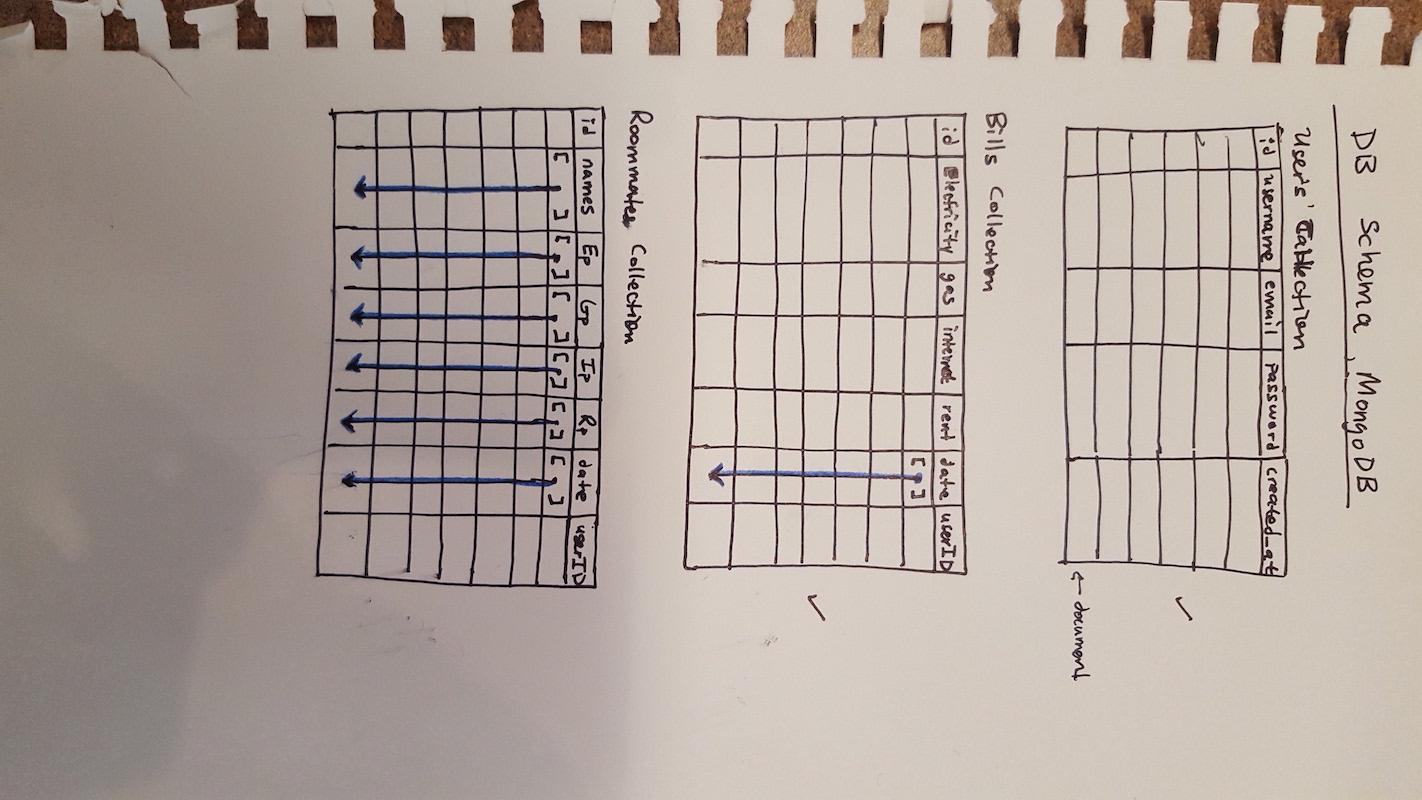 DB Schema, MongoDB
id username email password created_at
← document
Bills Collection
id Electricity gas internet rent date userID
[,]
Roommates Collection
id names Ep Gp Ip Rp date userID
[, ] [,] [,] [,] [,] [,]